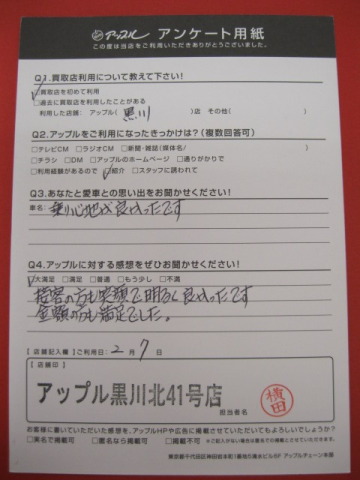 アップル アンケート用紙
この度は当店をご利用いただきありがとうございました。
Q1.買取店利用について教えて下さい!
☑買取店を初めて利用
□過去に買取店を利用したことがある
利用した店舗: アップル( 黒川 )店 その他( )
Q2.アップルをご利用になったきっかけは?(複数回答可)
□テレビCM □ラジオCM □新聞・雑誌(媒体名/ )
□チラシ □DM □アップルのホームページ □通りがかりで
□利用経験があるので ☑紹介 □スタッフに誘われて
Q3.あなたと愛車との思い出をお聞かせください!
車名: 乗り心地が良かったです
Q4.アップルに対する感想をぜひお聞かせください!
☑大満足 □満足 □普通 □もう少し □不満
接客の方も笑顔で明るく良かったです
金額の方も満足でした。
【店舗記入欄】ご利用日: 2月 7日
【店舗印】
アップル黒川北41号店
担当者名
横田
お客様に書いていただいた感想を、アップルHPや広告に掲載させていただいてもよろしいでしょうか?
□実名で掲載可 □匿名なら掲載可 □掲載不可 ※ご記入がない場合は匿名での掲載とさせていただきます。